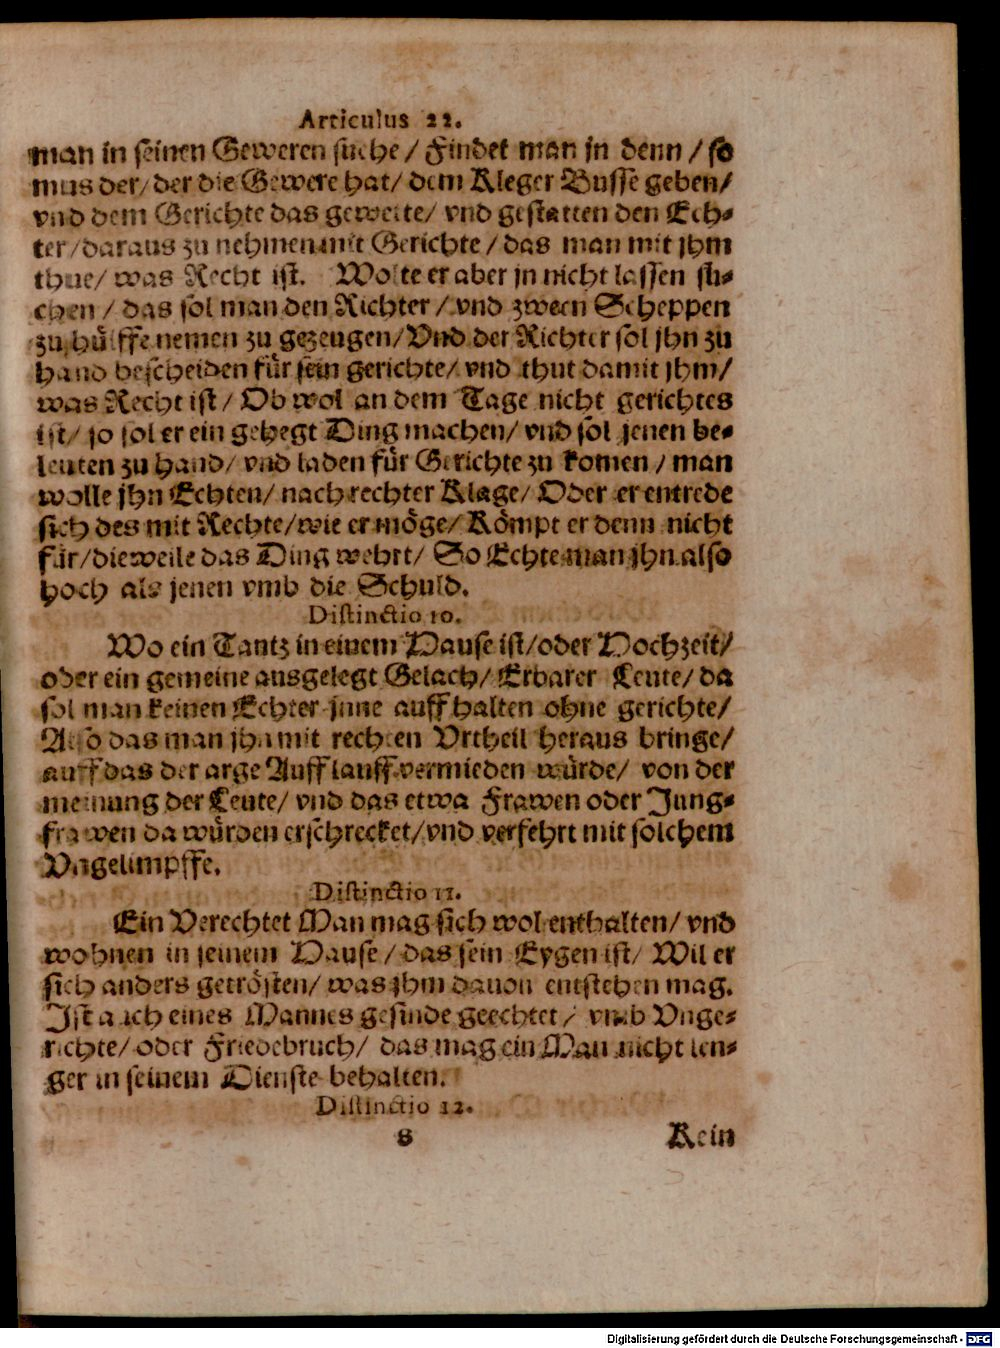 Articulus 22.
man in seinen Geweren suche / Findet man jn denn / so
mus der / der die Gewere hat / dem Kleger Busse geben /
vnd dem Gerichte das gewette / vnd gestatten den Ech-
ter / daraus zu nehmen mit Gerichte / das man mit jhm
thue / was Recht ist. Wolte er aber jn nicht lassen su-
chen / das sol man den Richter / vnd zween Scheppen
zu hülffe nemen zu gezeugen / Vnd der Richter sol jhn zu
hand bescheiden für sein gerichte / vnd thut damit jhm /
was Recht ist / Ob wol an dem Tage nicht gerichtes
ist / so sol er ein gehegt Ding machen / vnd sol jenen be-
leuten zu hand / vnd laden für Gerichte zu komen / man
wolle jhn Echten / nach rechter Klage / Oder er entrede
sich des mit Rechte / wie er möge / Kömpt er denn nicht
für / dieweile das Ding wehrt / So Echte man jhn also
hoch als jenen vmb die Schuld.
Distinctio 10.
Wo ein Tantz in einem Hause ist / oder Hochzeit /
oder ein gemeine ausgelegt Gelach / Erbarer Leute / da
sol man keinen Echter inne auff halten ohne gerichte /
Also das man jhn mit rechten Vrtheil heraus bringe /
auff das der arge Aufflauff vermieden würde / von der
meinung der Leute / vnd das etwa Frawen oder Jung-
frawen da würden erschrecket / vnd verfehrt mit solchem
Vngelimpffe.
Distinctio 11.
Ein Verechtet Man mag sich wol enthalten / vnd
wohnen in seinem Hause / das sein Eygen ist / Wil er
sich anders getrösten / was jhm dauon entstehen mag.
Ist auch eines Mannes gesinde geechtet / vmb Vnge-
richte / oder Friedebruch / das mag ein Man nicht len-
ger in seinem Dienste behalten.
Distinctio 12.
8 Kein
Digitalisierung gefördert durch die Deutsche Forschungsgemeinschaft - DFG